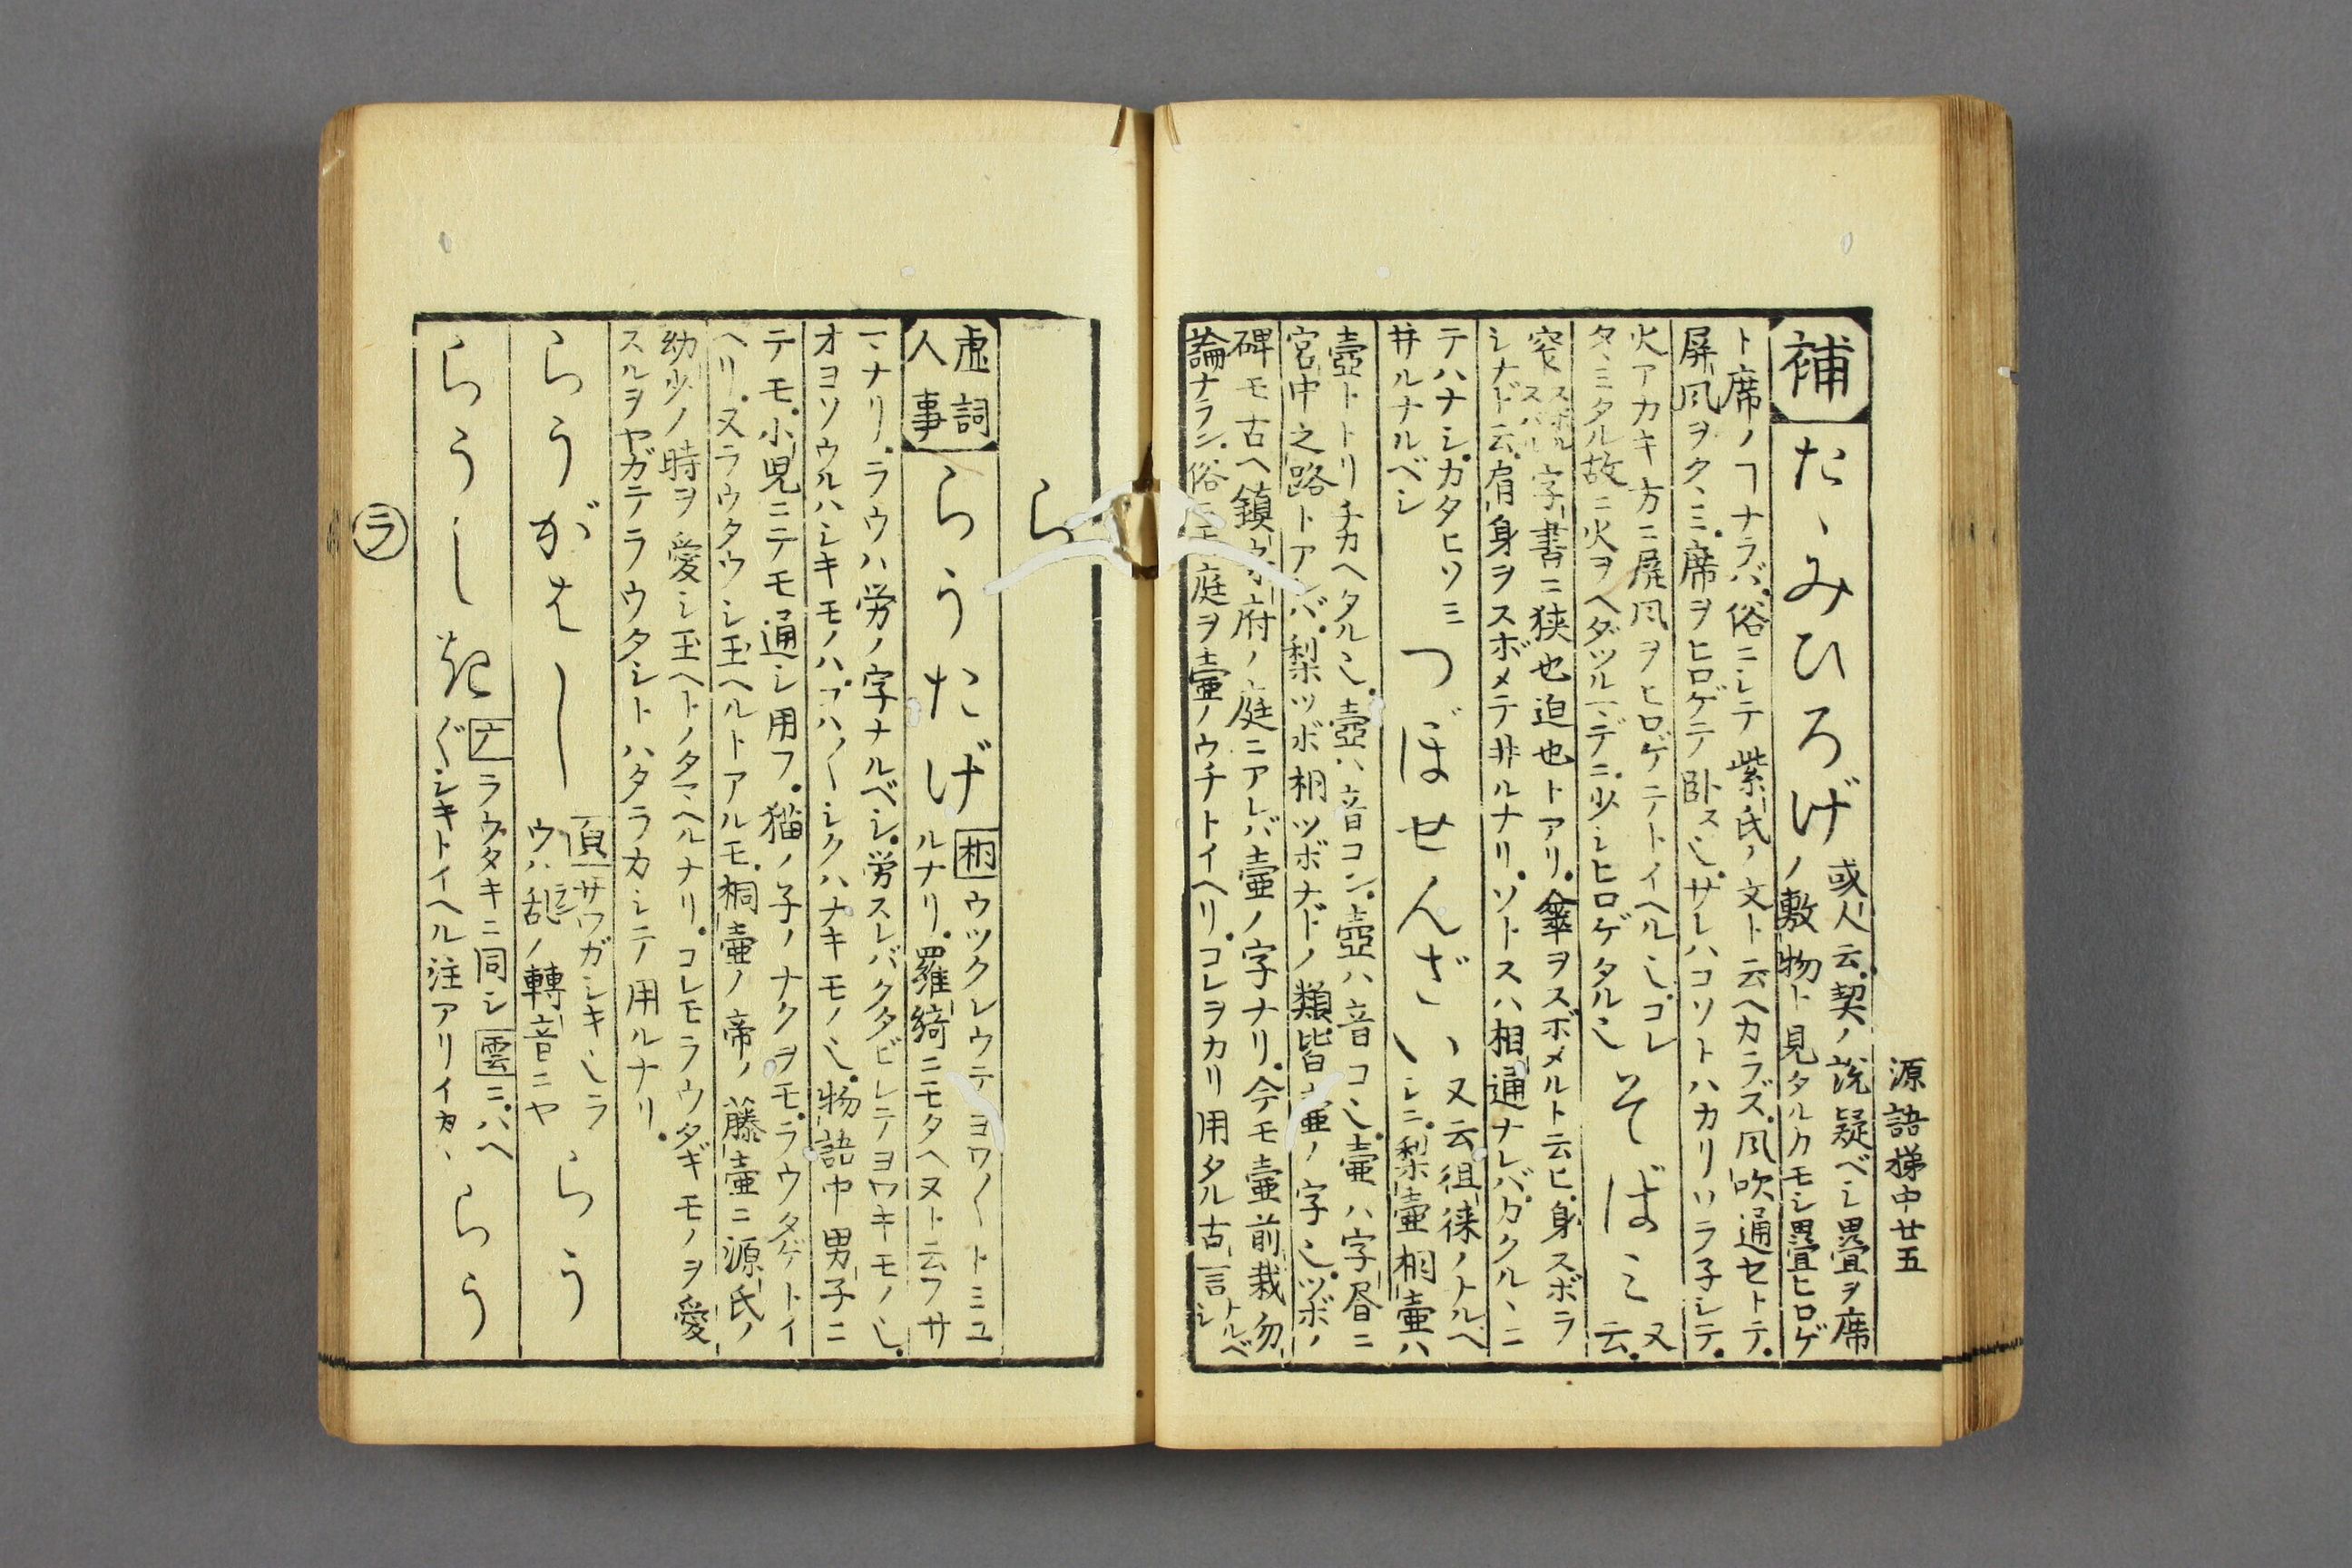 源語梯中廿五
補
たゝみひろげ
或人云、契ノ説疑ベシ畳ヲ席
ノ敷物ト見タルカモシ畳ヒロゲ
ト席ノヿナラバ、俗ニシテ紫氏ノ文ト云ヘカラズ、風吹通セトテ、
屏風ヲタヽミ、席ヲヒロゲテ臥ス也、サレハコソトハカリソラ子シテ、
火アカキ方ニ屏風ヲヒロゲテトイヘル也、コレ
タヽミタル故ニ火ヲヘダツルマデニ、少シヒロゲタル也
そばミ
又
云、
窄
スボル
スバシ
字書ニ狭也迫也トアリ、傘ヲスボメルト云ヒ、身スボラ
シナド云、肩身ヲスボメテ井ルナリ、ソトスハ相通ナレバ、カクルヽニ
テハナシ、カタヒソミ
井ルナルベシ
つぼせんざい
又云、徂徠ノナルベ
シニ、梨壷桐壷ハ
壺トトリチカヘタル也、壺ハ音コン、壺ハ音コ也、壷ハ字昏ニ
宮中之路トアレバ、梨ツボ桐ツボナドノ類、皆壷ノ字也、ツボノ
碑モ古ヘ鎮守府ノ庭ニアレバ壷ノ字ナリ、今モ壷前栽勿
論ナラン、俗ニモ庭ヲ壷ノウチトイヘリ、コレヲカリ用タル古言
ナルベ
シ
ら
虚詞
人事
らうたげ
桐
ウツクシウテヨワ〳〵トミユ
ルナリ、羅綺ニモタヘヌト云フサ
マナリ、ラウハ労ノ字ナルベシ、労スレバクタビレテヨワキモノ也、
オヨソウルハシキモノハ、コハ〴〵シクハナキモノ也、物語中男子ニ
テモ、小児ニテモ通シ用フ、猫ノ子ノナクヲモ、ラウタゲトイ
ヘリ、又ラウタウシ玉ヘルトアルモ、桐壷ノ帝ノ藤壷ニ源氏ノ
幼少ノ時ヲ愛シ玉ヘトノタマヘルナリ、コレモラウタギモノヲ愛
スルヲヤガテラウタシトハタラカシテ用ルナリ、
らうがはし
頂
サワガシキ也ラ
ウハ乱ノ轉音ニヤ
ラン
らう
らうしき
ラウタキニ同シ
雲
ニ、ハヘ
〴〵シキトイヘル注アリイカヽ
らう
ラ